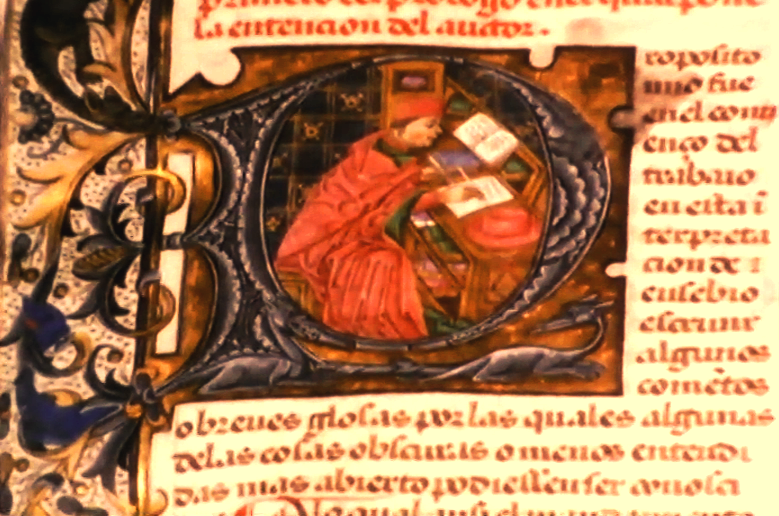 la entencion del auctor.
Proposito
mio fue
en el comi
enço del
trabaio
en esta ī
terpreta
cion de
eusebio
escriuir
algunos
comētos
o breues glosas por las quales algunas
delas cosas obscuras o menos entendi
das mas abierto podiessen ser conosci